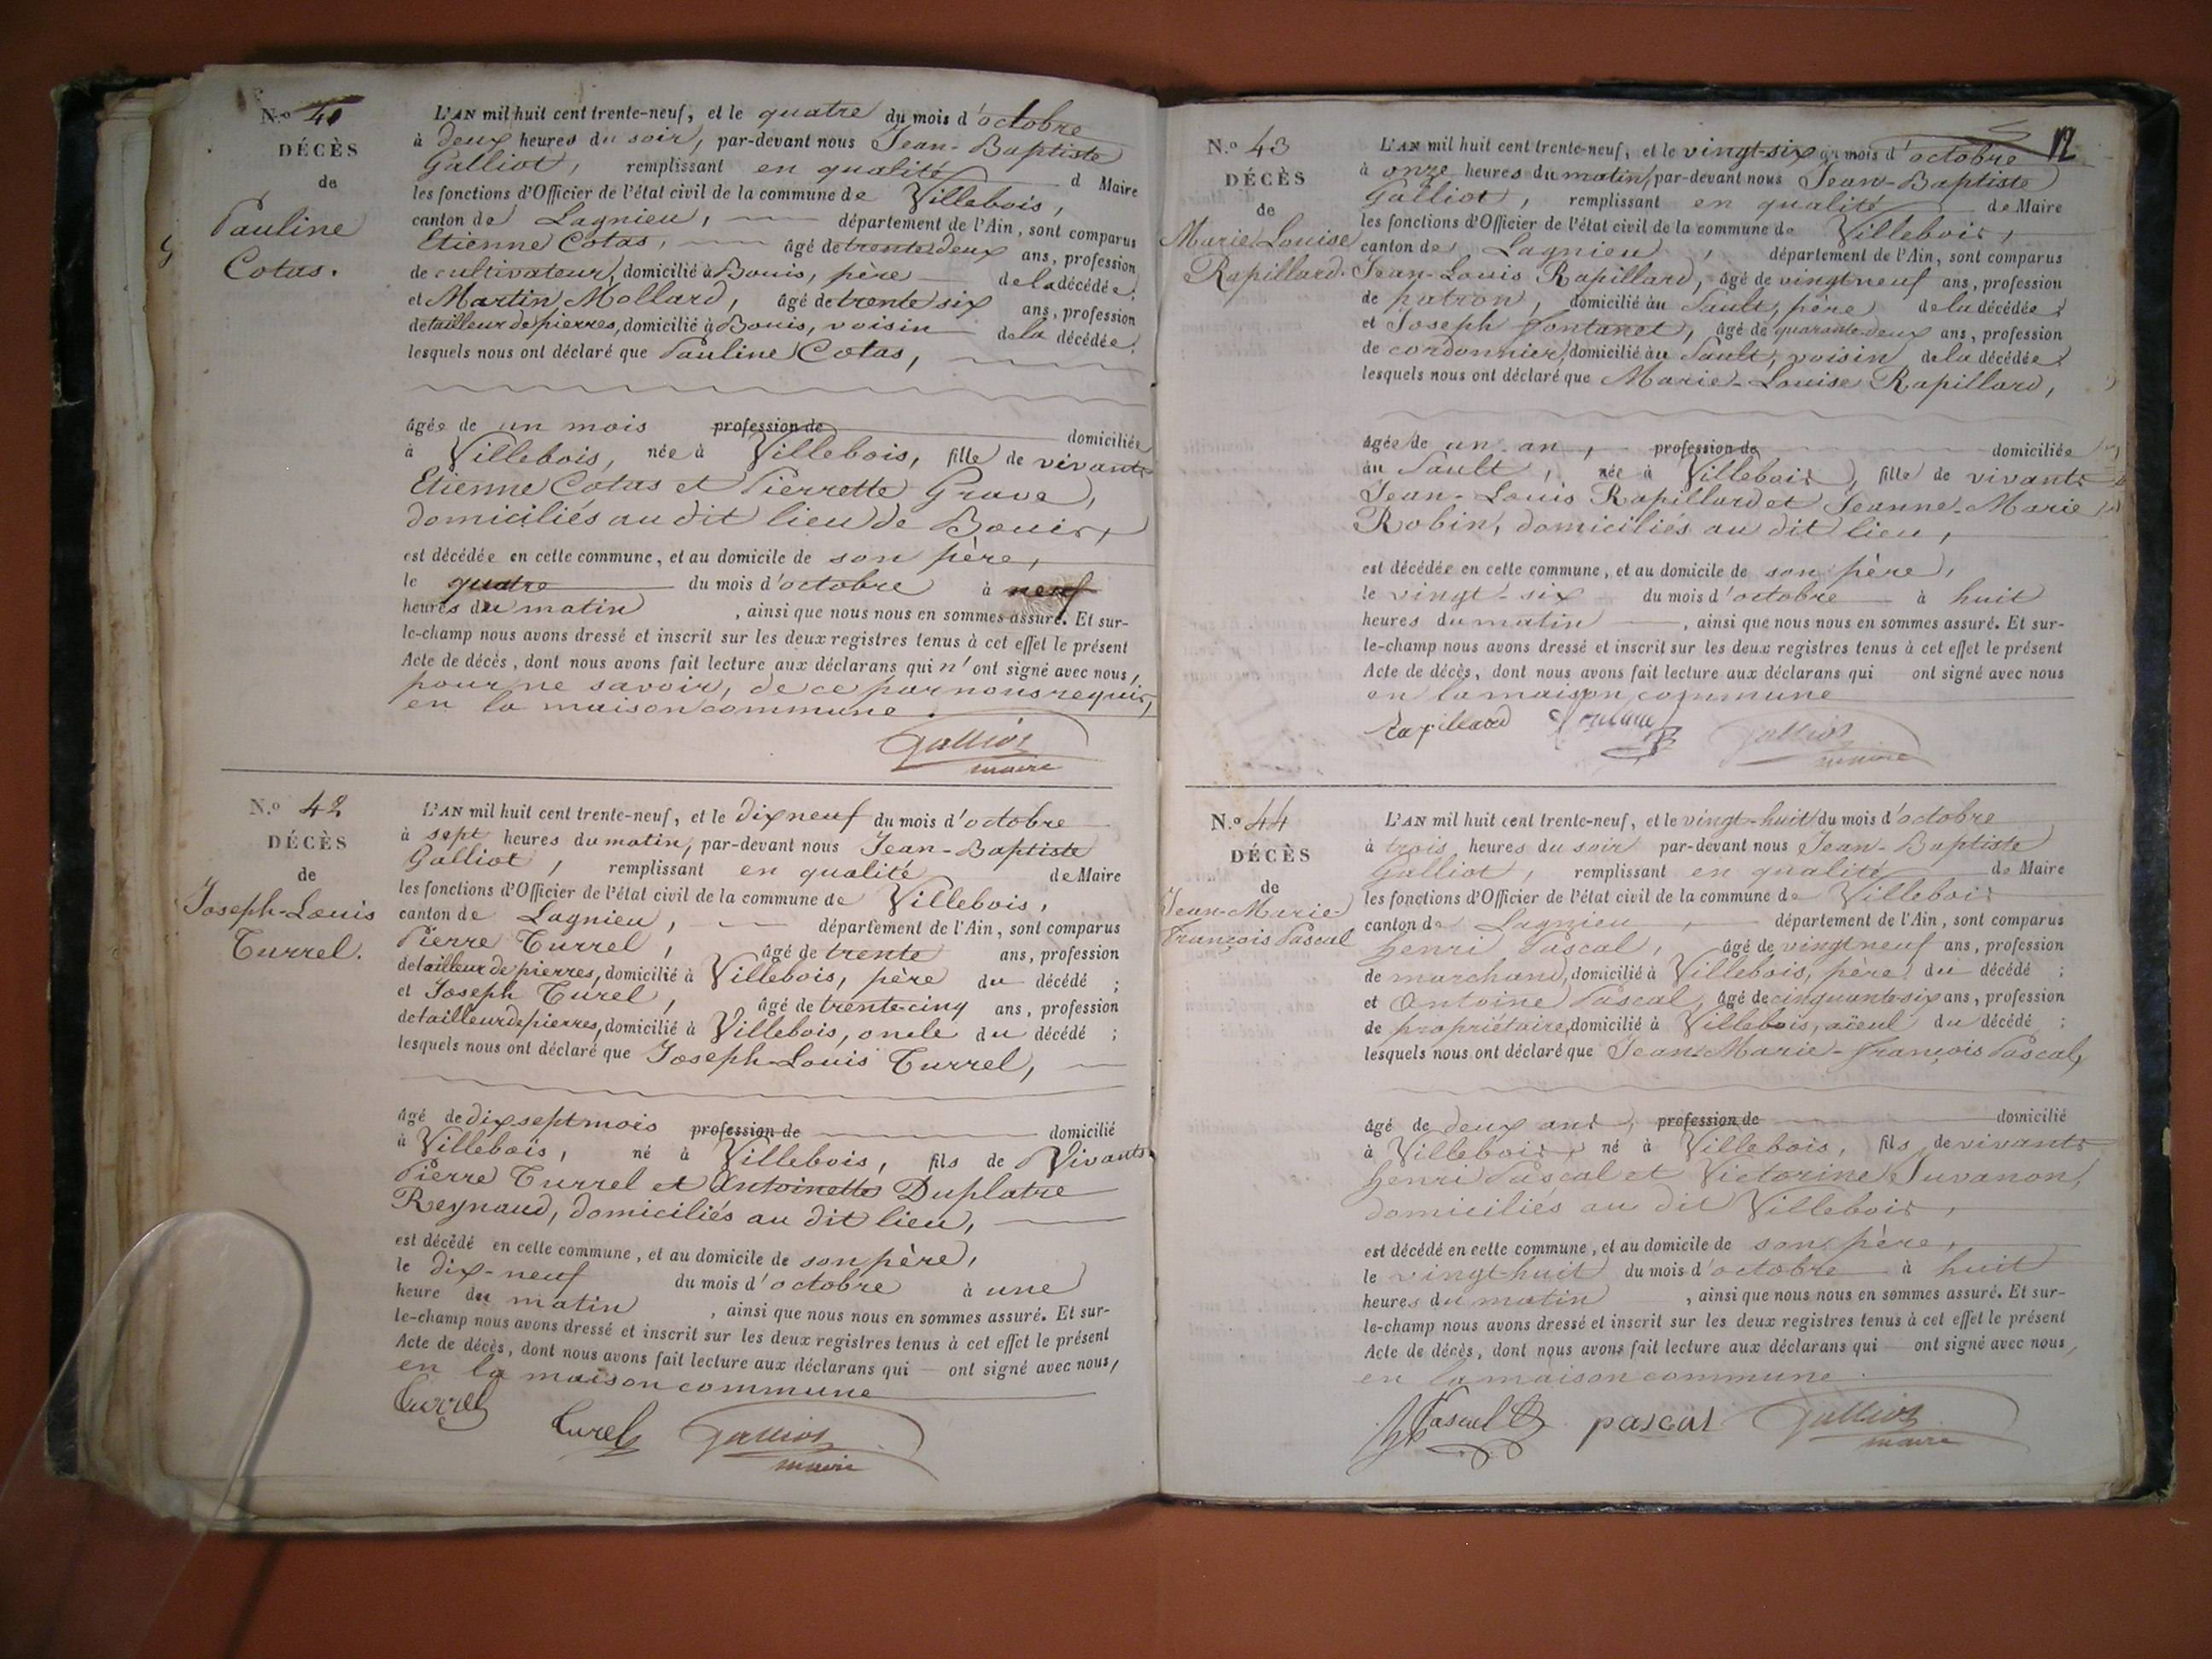 N.o 41
DÉCÈS
de
Pauline
Cotas.
L'AN mil huit cent trente-neuf, et le quatre du mois d'octobre
à deux heures du soir, par-devant nous Jean-Baptiste
Galliot, remplissant en qualité d Maire
les fonctions d'Officier de l'état civil de la commune de Villebois,
canton de Lagnieu, département de l'Ain, sont comparus
Etienne Cotas, âgé de trente deux ans, profession
de cultivateur, domicilié à Bouis, père de la décédée;
et Martin Mollard, âgé de trente six ans, profession
de tailleur de pierres, domicilié à Bouis, voisin de la décédée;
lesquels nous ont déclaré que Pauline Cotas,
âgée de un mois profession de domiciliée
à Villebois, née à Villebois, fille de vivants
Etienne Cotas et Pierrette Grava,
domiciliés au dit lieu de Bouis,
est décédée en cette commune, et au domicile de son père,
le quatre du mois d'octobre à neuf
heures du matin, ainsi que nous nous en sommes assuré. Et sur-
le-champ nous avons dressé et inscrit sur les deux registres tenus à cet effet le présent
Acte de décès, dont nous avons fait lecture aux déclarans qui n'ont signé avec nous,
pour ne savoir, de ce par nous requis,
en la maison commune.
Galliot
maire
N.o 42
DÉCÈS
de
Joseph-Louis
Turrel.
L'AN mil huit cent trente-neuf, et le dix neuf du mois d'octobre
à sept heures du matin, par-devant nous Jean-Baptiste
Galliot, remplissant en qualité de Maire
les fonctions d'Officier de l'état civil de la commune de Villebois,
canton de Lagnieu, département de l'Ain, sont comparus
Pierre Turrel, âgé de trente ans, profession
de tailleur de pierres, domicilié à Villebois, père du décédé;
et Joseph Turel, âgé de trente cinq ans, profession
de tailleur de pierres, domicilié à Villebois, oncle du décédé;
lesquels nous ont déclaré que Joseph-Louis Turrel,
âgé de dix sept mois profession de domicilié
à Villebois, né à Villebois, fils de Vivants
Pierre Turrel et Antoinette Duplatre
Reynaud, domiciliés au dit lieu,
est décédé en cette commune, et au domicile de son père,
le dix-neuf du mois d'octobre à une
heure du matin, ainsi que nous nous en sommes assuré. Et sur-
le-champ nous avons dressé et inscrit sur les deux registres tenus à cet effet le présent
Acte de décès, dont nous avons fait lecture aux déclarans qui ont signé avec nous,
en la maison commune
Turrel Turel Galliot
maire
12
N.o 43
DÉCÈS
de
Marie Louise
Rapillard.
L'AN mil huit cent trente-neuf, et le vingt-six du mois d'octobre
à onze heures du matin, par-devant nous Jean-Baptiste
Galliot, remplissant en qualité de Maire
les fonctions d'Officier de l'état civil de la commune de Villebois,
canton de Lagnieu, département de l'Ain, sont comparus
Jean-Louis Rapillard, âgé de vingt neuf ans, profession
de patron, domicilié au Sault, père de la décédée;
et Joseph Fontanet, âgé de quarante deux ans, profession
de cordonnier, domicilié au Sault, voisin de la décédée;
lesquels nous ont déclaré que Marie-Louise Rapillard,
âgée de un an, profession de domiciliée
au Sault, née à Villebois, fille de vivants
Jean-Louis Rapillard et Jeanne-Marie
Robin, domiciliés au dit lieu,
est décédée en cette commune, et au domicile de son père,
le vingt-six du mois d'octobre à huit
heures du matin, ainsi que nous nous en sommes assuré. Et sur-
le-champ nous avons dressé et inscrit sur les deux registres tenus à cet effet le présent
Acte de décès, dont nous avons fait lecture aux déclarans qui ont signé avec nous
en la maison commune
Rapillard Galliot
maire
N.o 44
DÉCÈS
de
Jean-Marie-
François Pascal
L'AN mil huit cent trente-neuf, et le vingt-huit du mois d'octobre
à trois heures du soir par-devant nous Jean-Baptiste
Galliot, remplissant en qualité de Maire
les fonctions d'Officier de l'état civil de la commune de Villebois
canton de Lagnieu, département de l'Ain, sont comparus
henri Pascal, âgé de vingt neuf ans, profession
de marchand, domicilié à Villebois, père du décédé;
et Antoine Pascal, âgé de cinquante-six ans, profession
de propriétaire, domicilié à Villebois, aïeul du décédé;
lesquels nous ont déclaré que Jean-Marie-François Pascal,
âgé de deux ans, profession de domicilié
à Villebois, né à Villebois, fils de vivants
henri Pascal et Victorine Juvanon,
domiciliés au dit Villebois,
est décédé en cette commune, et au domicile de son père,
le vingt huit du mois d'octobre à huit
heures du matin, ainsi que nous nous en sommes assuré. Et sur-
le-champ nous avons dressé et inscrit sur les deux registres tenus à cet effet le présent
Acte de décès, dont nous avons fait lecture aux déclarans qui ont signé avec nous,
en la maison commune.
hPascal pascal Galliot
maire